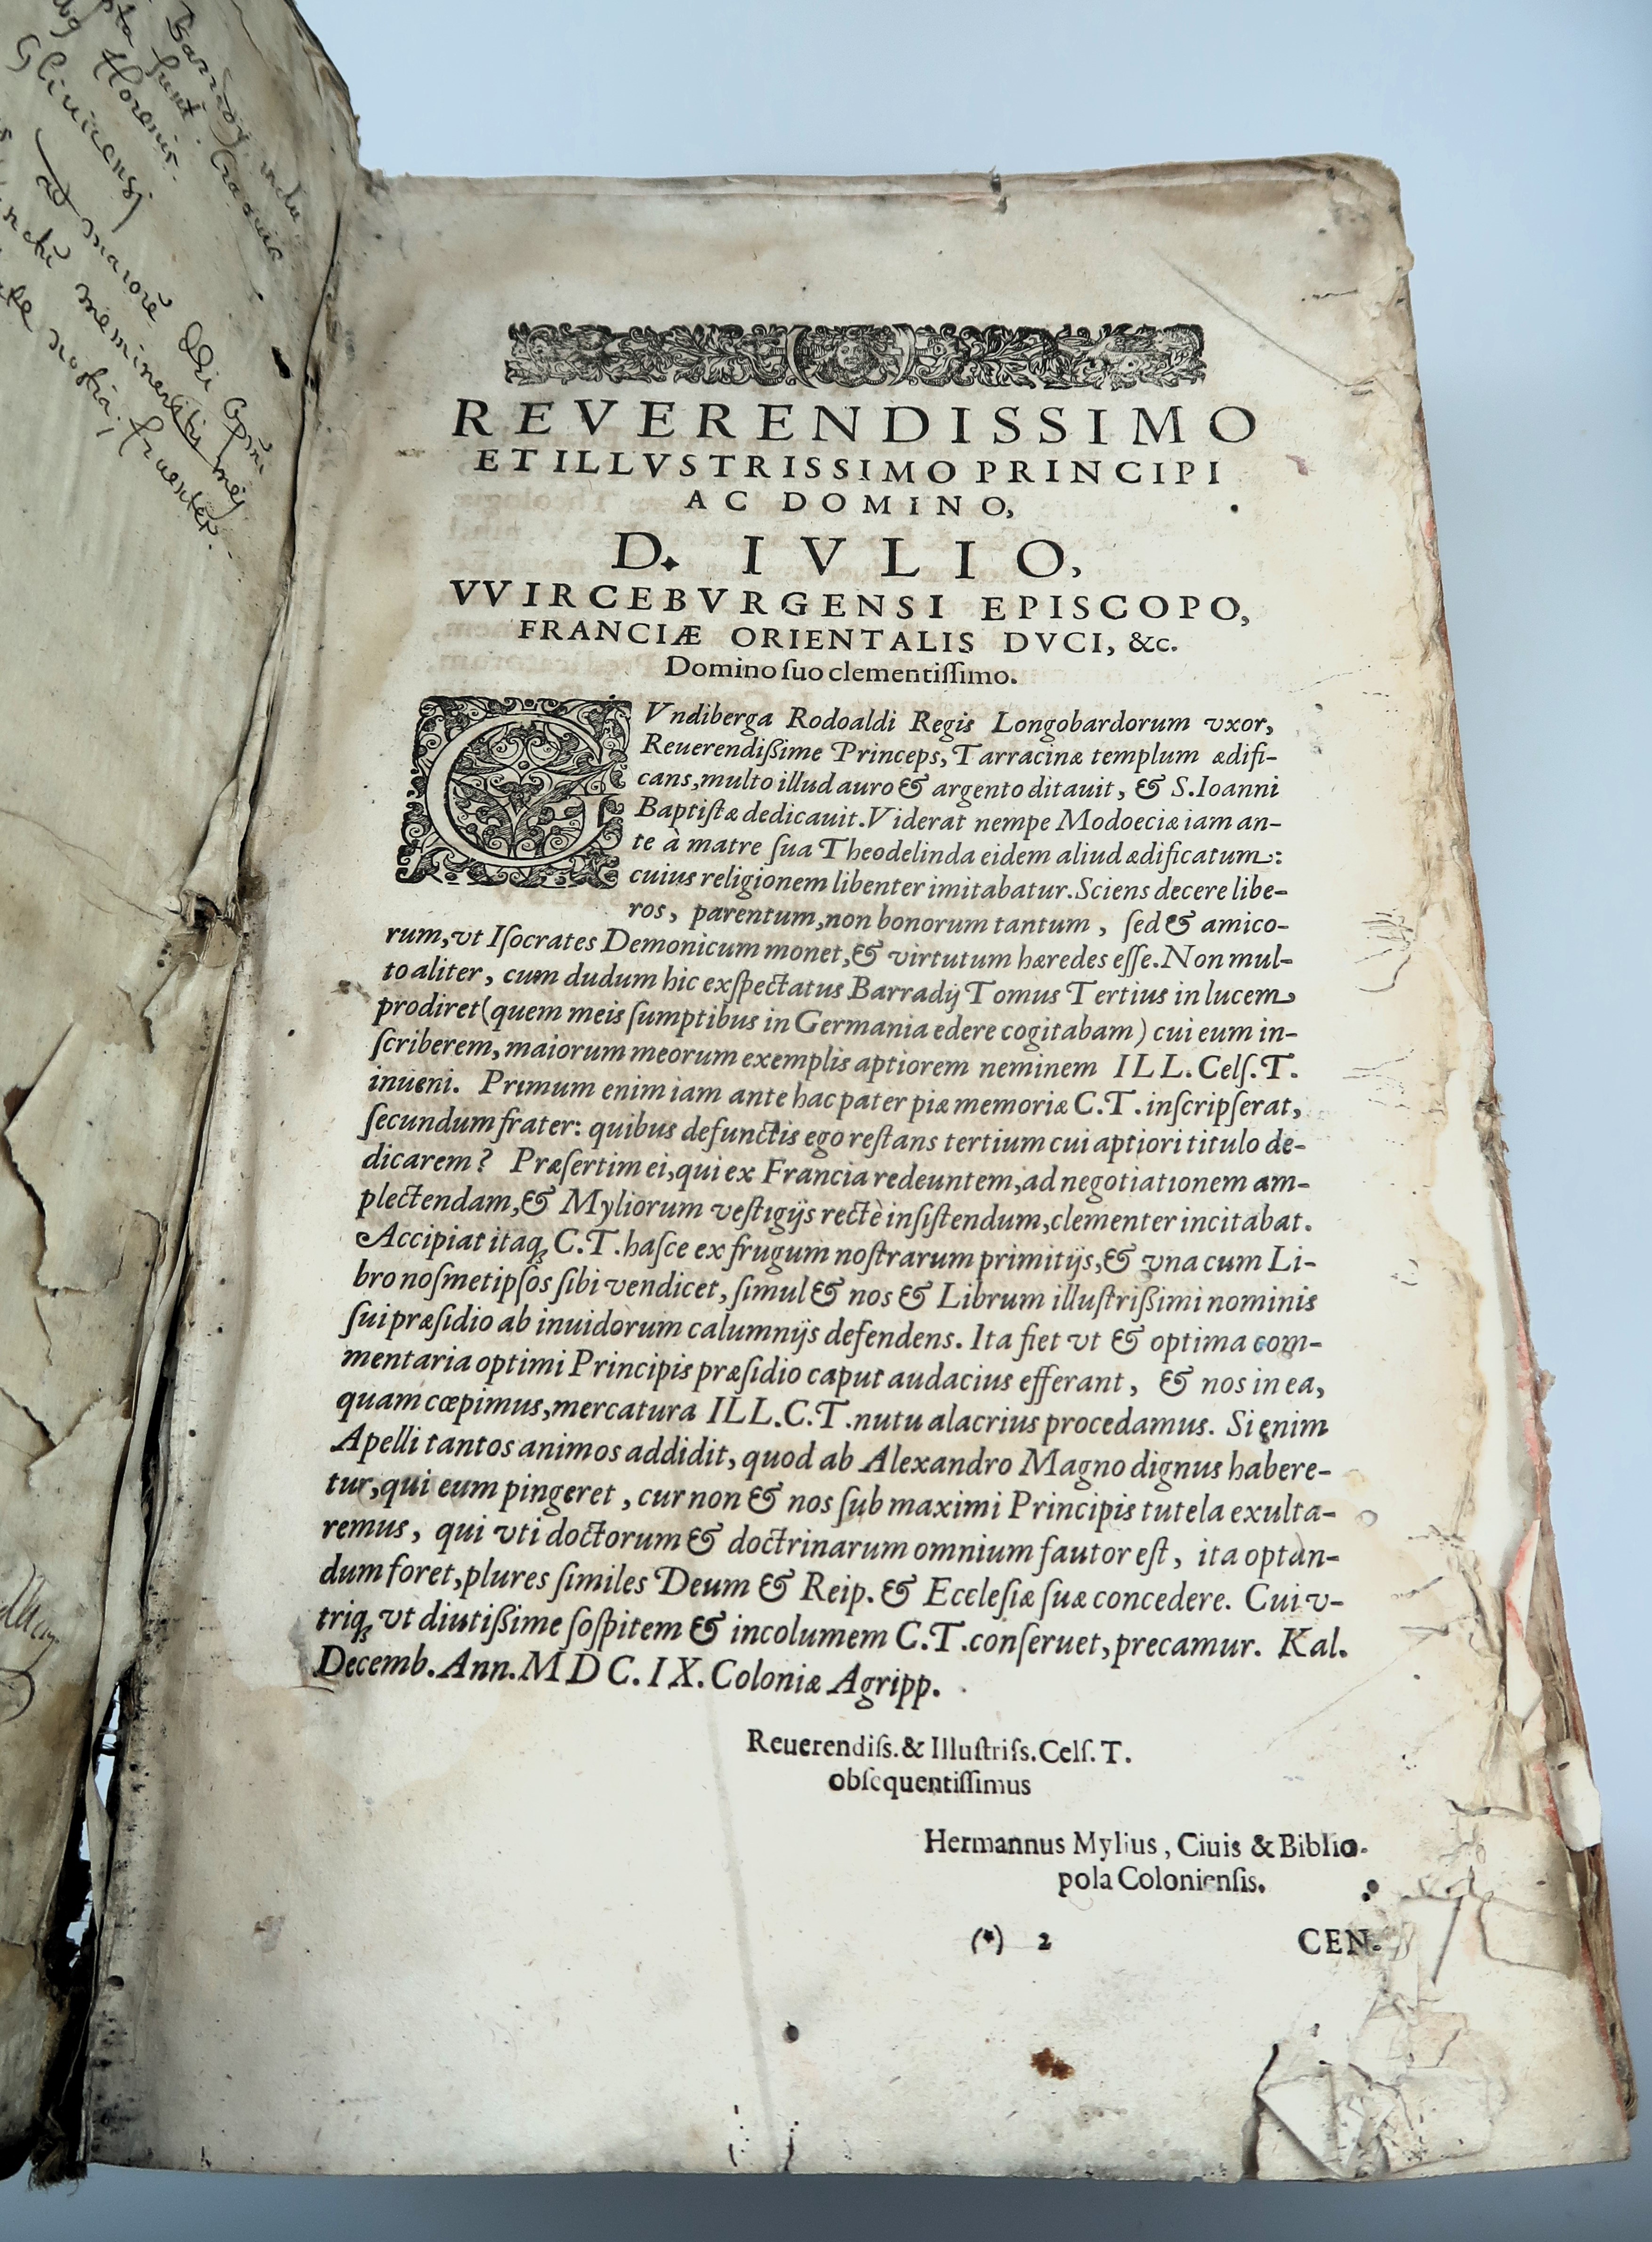 Glivicensi
ad maiorē Dei
REVERENDISSIMO
ET ILLVSTRISSIMO PRINCIPI
AC DOMINO,
D. IVLIO,
VVIRCEBVRGENSI EPISCOPO,
FRANCIÆ ORIENTALIS DVCI, &c.
Domino ſuo clementiſſimo.
GVndiberga Rodoaldi Regis Longobardorum vxor,
Reuerendißime Princeps, Tarracinæ templum ædifi-
cans, multo illud auro & argento ditauit, & S. Ioanni
Baptiſtæ dedicauit. Viderat nempe Modoeciæ iam an-
te à matre ſua Theodelinda eidem aliud ædificatum:
cuius religionem libenter imitabatur. Sciens decere libe-
ros, parentum, non bonorum tantum, ſed & amico-
rum, vt Iſocrates Demonicum monet, & virtutum hæredes eſſe. Non mul-
to aliter, cum dudum hic exſpectatus Barradij Tomus Tertius in lucem
prodiret (quem meis ſumptibus in Germania edere cogitabam) cui eum in-
ſcriberem, maiorum meorum exemplis aptiorem neminem ILL. Celſ. T.
inueni. Primum enim iam ante hac pater piæ memoriæ C. T. inſcripſerat,
ſecundum frater: quibus defunctis ego reſtans tertium cui aptiori titulo de-
dicarem? Præſertim ei, qui ex Francia redeuntem, ad negotiationem am-
plectendam, & Myliorum veſtigijs rectè inſiſtendum, clementer incitabat.
Accipiat itaq; C. T. haſce ex frugum noſtrarum primitijs, & vna cum Li-
bro noſmetipſos ſibi vendicet, ſimul & nos & Librum illuſtrißimi nominis
ſui præſidio ab inuidorum calumnijs defendens. Ita fiet vt & optima com-
mentaria optimi Principis præſidio caput audacius efferant, & nos in ea,
quam cœpimus, mercatura ILL. C. T. nutu alacrius procedamus. Si enim
Apelli tantos animos addidit, quod ab Alexandro Magno dignus habere-
tur, qui eum pingeret, cur non & nos ſub maximi Principis tutela exulta-
remus, qui vti doctorum & doctrinarum omnium fautor eſt, ita optan-
dum foret, plures ſimiles Deum & Reip. & Eccleſiæ ſuæ concedere. Cui v-
triq; vt diutißime ſoſpitem & incolumem C. T. conſeruet, precamur. Kal.
Decemb. Ann. MDC.IX. Coloniæ Agripp.
Reuerendiſs. & Illuſtriſs. Celſ. T.
obſequentiſſimus
Hermannus Mylius, Ciuis & Biblio-
pola Colonienſis.
(*) 2 CEN-